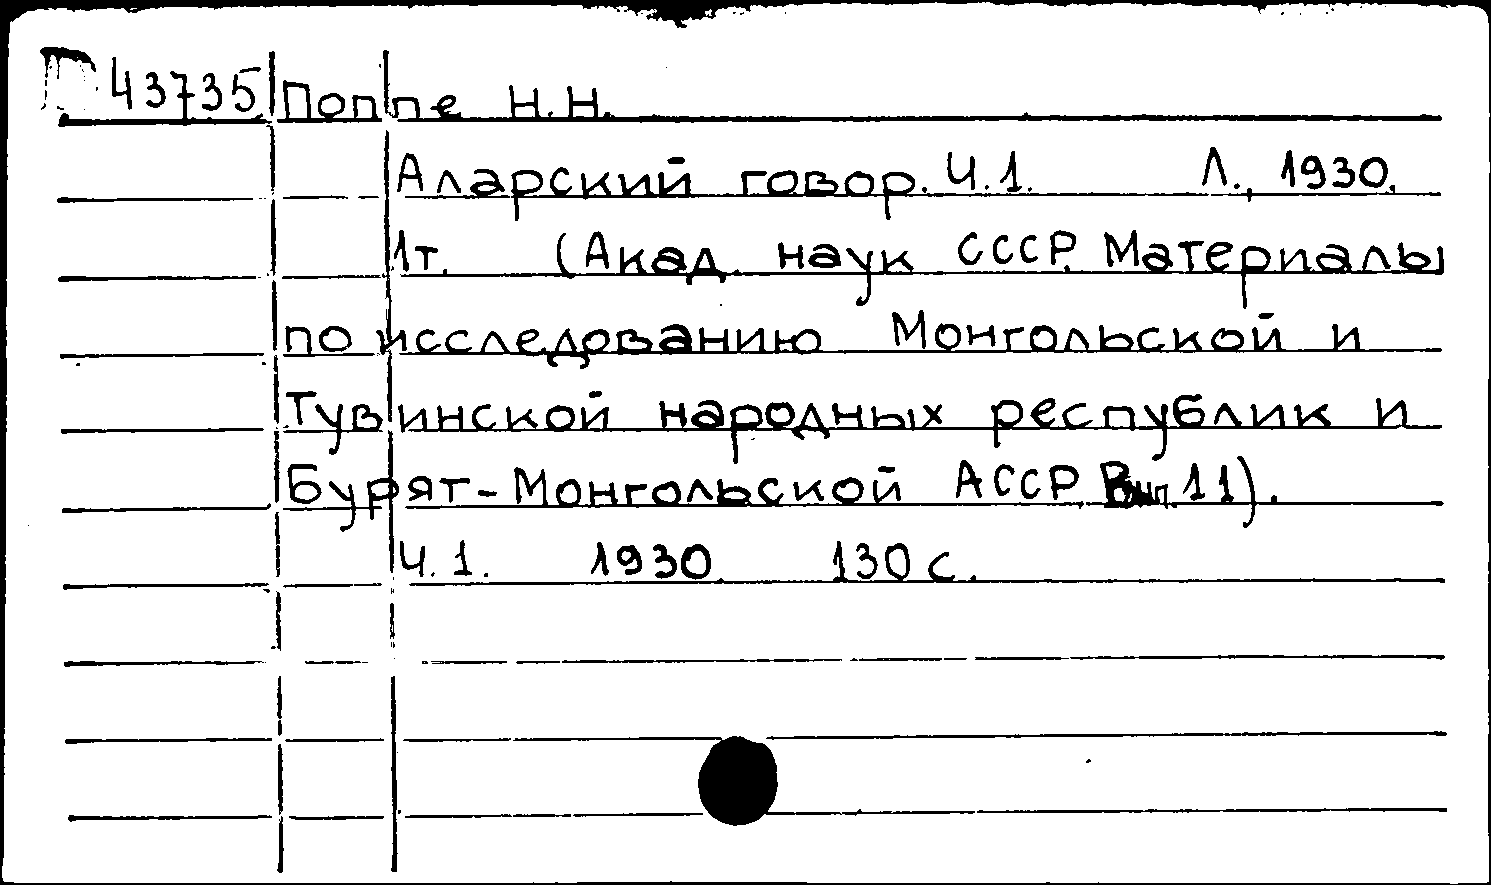 43735 Поппе Н.Н.
Аларский говор. Ч.1. Л., 1930.
1т. (Акад. наук СССР. Материалы
по исследованию Монгольской и
Тувинской народных республик и
Бурят-Монгольской АССР. Вып. 11).
Ч.1. 1930. 130 с.